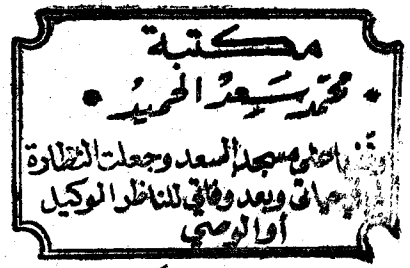 مكتبة
محمد سعد الحميد
على مسجد السعد وجعلت النظارة
حياتي وبعد وفاتي للناظر الوكيل
أو الوصي